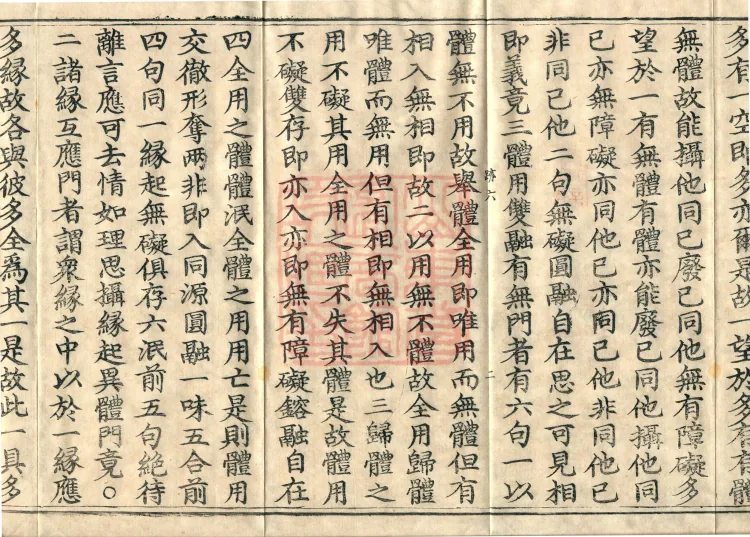 多有一空即多亦爾是故一望於多有有體
無體故能攝他同已廢已同他無有障礙多
望於一有無體有體亦能廢已同他攝他同
已亦無障礙亦同他已亦同已他非同他已
非同已他二句無礙圓融自在思之可見相
即義竟三體用雙融有無門者有六句一以
疏六 二
體無不用故舉體全用即唯用而無體但有
相入無相即故二以用無不體故全用歸體
唯體而無用但有相即無相入也三歸體之
用不礙其用全用之體不失其體是故體用
不礙雙存即亦入亦即無有障礙鎔融自在
四全用之體體泯全體之用用亡是則體用
交徹形奪兩非即入同源圓融一味五合前
四句同一緣起無礙俱存六泯前五句絶待
離言應可去情如理思攝緣起異體門竟。
二諸緣互應門者謂衆緣之中以於一緣應
多緣故各與彼多全爲其一是故此一具多